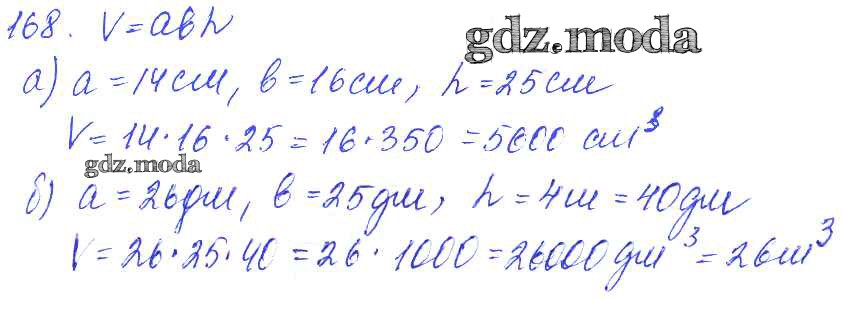 168. V=abh
gdz.moda
а) a=14см, b=16см, h=25см
V=14·16·25=16·350=5600 см³
gdz.moda
б) a=26дм, b=25дм, h=4м=40дм
V=26·25·40=26·1000=26000дм³=26м³